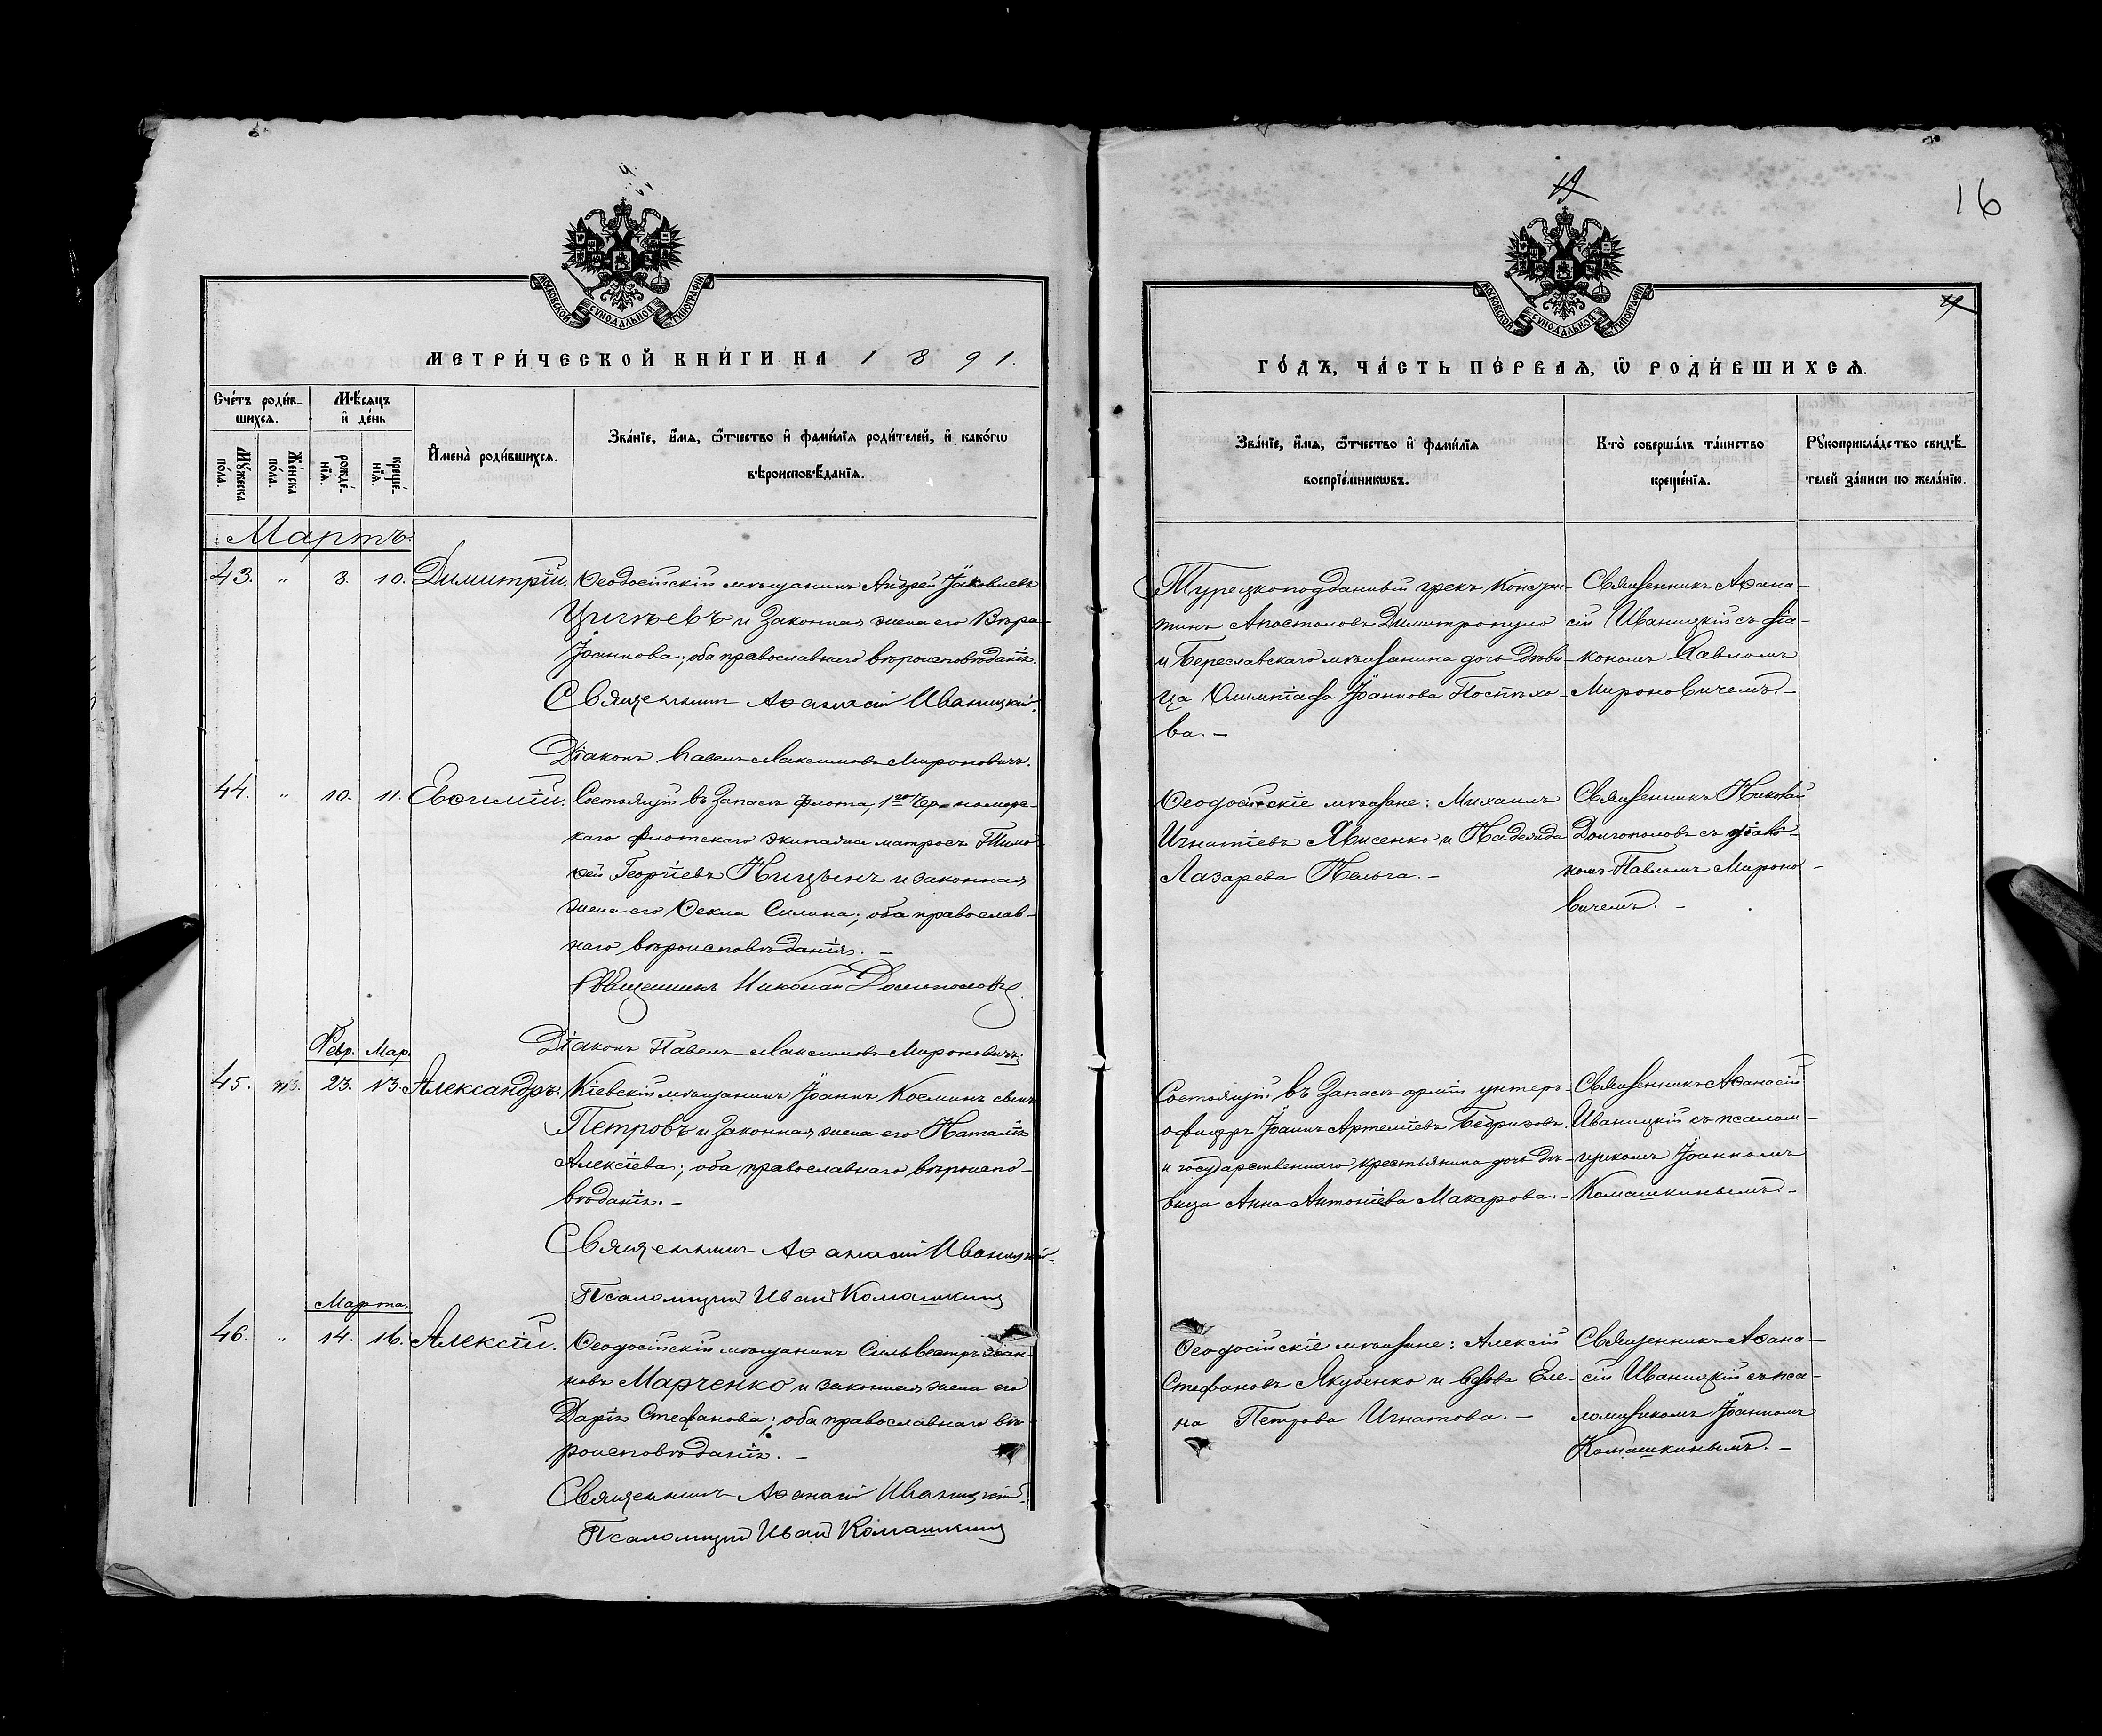 19
16
МОСКОВСКОЙ СУНОДАЛЬНОЙ ТИПОГРАФІИ
МЕТРИ́ЧЕСКОЙ КНИ́ГИ НА 1891.
Сче́тъ роди́в-
шихся.
Мѣ́сяцъ
и҆ де́нь
Мꙋ́жеска
по́ла.
Же́нска
по́ла.
рожде́-
нїя.
креще́-
нїя.
И҆мена̀ роди́вшихся.
Зва́нїе, и҆́мя, ѻ҆́тчество и҆ фами́лїя роди́телей, и҆ како́гѡ
вѣроисповѣ́данїя.
Мартъ.
43. " 8. 10. Димитрій. Ѳеодосійскій мѣщанинъ Андрей Іаковлевъ
и законная жена его Вѣра
Іоаннова; оба православнаго вѣроисповѣданія.
Священникъ Аѳанасій Иваницкій.
Діаконъ Павелъ Максимовъ Мироновичъ.
44. " 10. 11. Евѳимій. Состоящій въ запасѣ флота, 1го Черноморс-
каго флотскаго экипажа матросъ Тимо-
ѳей Георгіевъ Ницынъ и законная
жена его Ѳекла Силина; оба православ-
наго вѣроисповѣданія. —
Священникъ Николай Долгополовъ
Діаконъ Павелъ Максимовъ Мироновичъ
Февр. Мар.
45. 23. 13. Александръ. Кіевскій мѣщанинъ Іоаннъ Косминъ сынъ
Петровъ и законная жена его Наталія
Алексіева; оба православнаго вѣроиспо-
вѣданія. —
Священникъ Аѳанасій Иваницкій
Псаломщикъ Иванъ Комашкинъ
Марта.
46. " 14. 16. Алексій. Ѳеодосійскій мѣщанинъ Сильвестръ Іоан-
новъ Марченко и законная жена его
Дарія Стефанова; оба православнаго вѣ-
роисповѣданія. —
Священникъ Аѳанасій Иваницкій.
Псаломщикъ Иванъ Комашкинъ
МОСКОВСКОЙ СУНОДАЛЬНОЙ ТИПОГРАФІИ
ГО́ДЪ, ЧА́СТЬ ПЕ́РВАЯ, Ѡ҆ РОДИ́ВШИХСЯ.
Зва́нїе, и҆́мя, ѻ҆́тчество и҆ фами́лїя
воспрїе́мникѡвъ.
Кто̀ соверша́лъ та́инство
креще́нїя.
Рꙋкоприкла́дство свидѣ́-
телей за́писи по жела́нїю.
Турецкоподданный грекъ Констан-
тинъ Апостоловъ Димитропуло
и Береславскаго мѣщанина дочь дѣви-
ца Олимпіада Іоаннова Постъхо-
ва. —
Священникъ Аѳана-
сій Иваницкій съ діа-
кономъ Павломъ
Мироновичемъ. —
Ѳеодосійскіе мѣщане: Михаилъ
Игнатіевъ и Надежда
Лазарева —
Священникъ Николай
Долгополовъ съ діако-
номъ Павломъ Мироно-
вичемъ. —
Состоящій въ запасѣ арміи унтеръ-
офицеръ Іоаннъ Артеміевъ
и государственнаго крестьянина дочь дѣ-
вица Анна Антоніева Макарова. —
Священникъ Аѳанасій
Иваницкій съ псалом-
щикомъ Іоанномъ
Комашкинымъ. —
Ѳеодосійскіе мѣщане: Алексій
Стефановъ Якубенко и вдова Еле-
на Петрова Игнатова. —
Священникъ Аѳана-
сій Иваницкій съ пса-
ломщикомъ Іоанномъ
Комашкинымъ. —